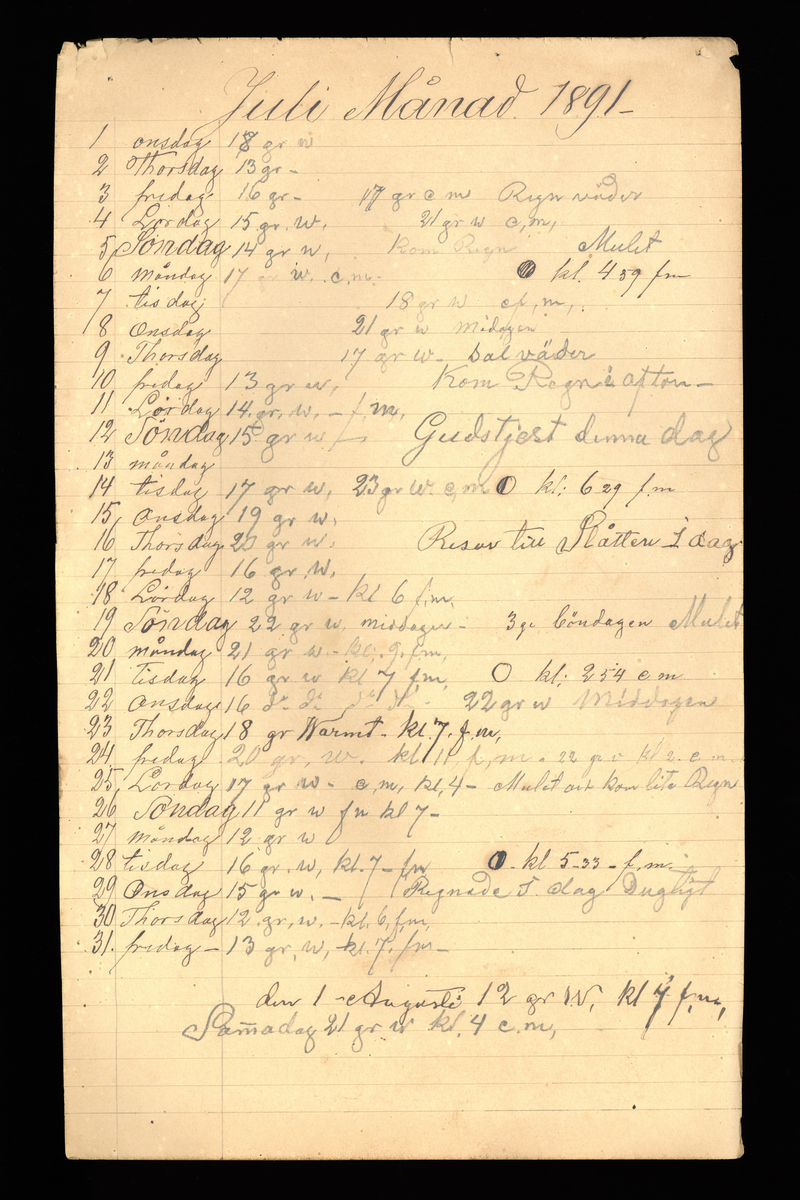 Juli Månad. 1891-
1 onsdag 18 gr w
2 Thorsdag 13 gr -
3 fredag 16 gr - 17 gr e m Regn väder
4 Lördag 15 gr. w, 21 gr w e, m,
5 Söndag 14 gr w, kom Regn Mulet
6 måndag 17 gr w. e, m- kl. 4 59 fm
7 tisdag 18 gr w ef, m,
8 Onsdag 21 gr w midagen
9 Thorsdag 17 gr w- väder
10 fredag 13 gr w, Kom Regn i afton -
11 Lördag 14. gr, w, - f, m,
12 Söndag 15 gr w Gudstjest denna dag
13 måndag
14 tisdag 17 gr w, 23 gr w. e, m kl: 6 29 fm
15, Onsdag 19 gr w.
16 Thorsdag 20 gr w. Resor till Slåttern I dag
17 fredag 16 gr. w,
18 Lördag 12 gr w - kl 6 f,m,
19 Söndag 22 gr w. middagen - 3ge böndagen Mulet
20 måndag 21 gr w. - kl. 9. fm,
21 tisdag 16 gr w kl 7 fm, kl: 2 54 e m
22 Onsdag 16 22 gr w Middagen
23 Thorsdag 18 gr Warmt - kl. 7. f. m,
24. fredag 20 gr, w. kl 11, f, m. 22 gr kl 2. e. m.
25, Lördag 17 gr w - e, m, kl, 4 - Mulet och kom lite Regn
26 Söndag 11 gr w fm kl 7-
27 måndag 12 gr w
28 tisdag 16 gr. w, kl. 7 - fm kl 5-33 - f. m.
29 Onsdag 15 gr w. - Regnade I. dag Dugtigt
30 Thorsdag 12. gr, w. - kl. 6, f,m,
31. fredag - 13 gr, w, kl. 7. fm -
den 1 - Augusti 12 gr W, kl 7 f,m,
Samadag 21 gr w kl. 4 e. m,